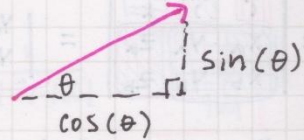 θ
sin(θ)
cos(θ)